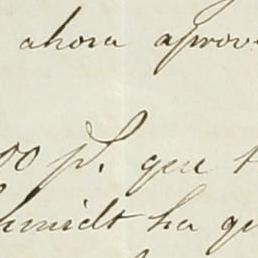 ahora aprov
00 pS. que t
hmidt ha qu